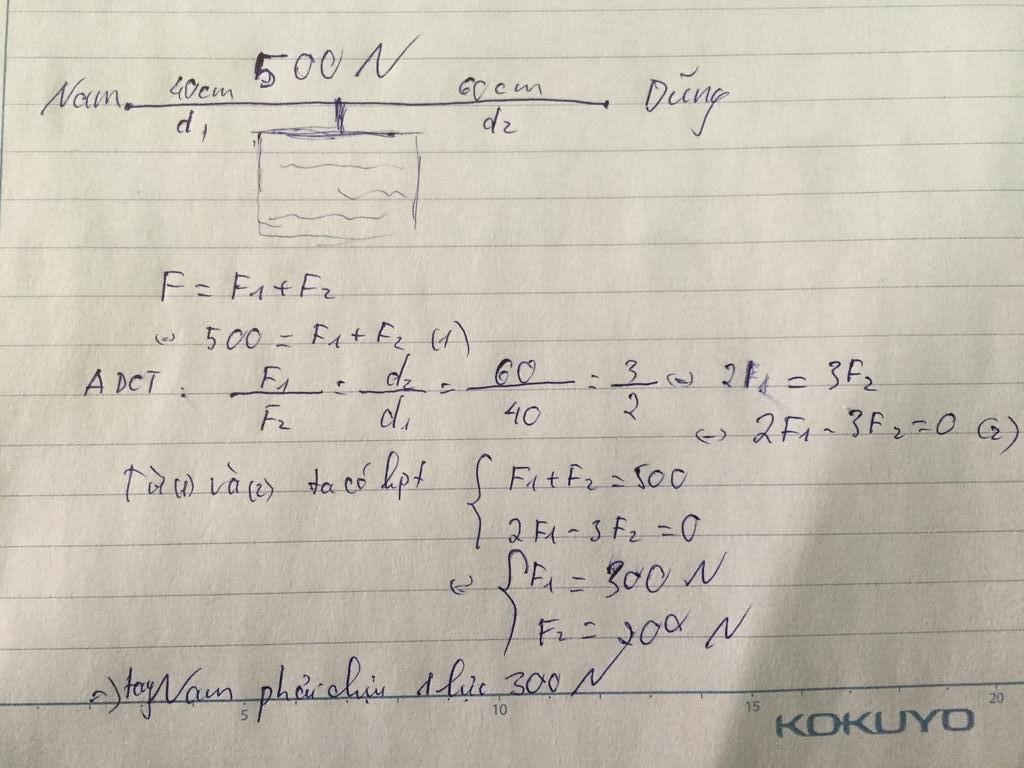 500 N
Nam 40cm 60cm Dũng
d₁ d₂
F = F₁ + F₂
⇔ 500 = F₁ + F₂ (1)
ADCT: F₁/F₂ = d₂/d₁ = 60/40 = 3/2 ⇔ 2F₁ = 3F₂
⇔ 2F₁ - 3F₂ = 0 (2)
Từ (1) và (2) ta có hpt { F₁ + F₂ = 500
2F₁ - 3F₂ = 0
⇔ { F₁ = 300 N
F₂ = 200 N
=> tay Nam phải chịu 1 lực 300 N
5 10 15 20
KOKUYO